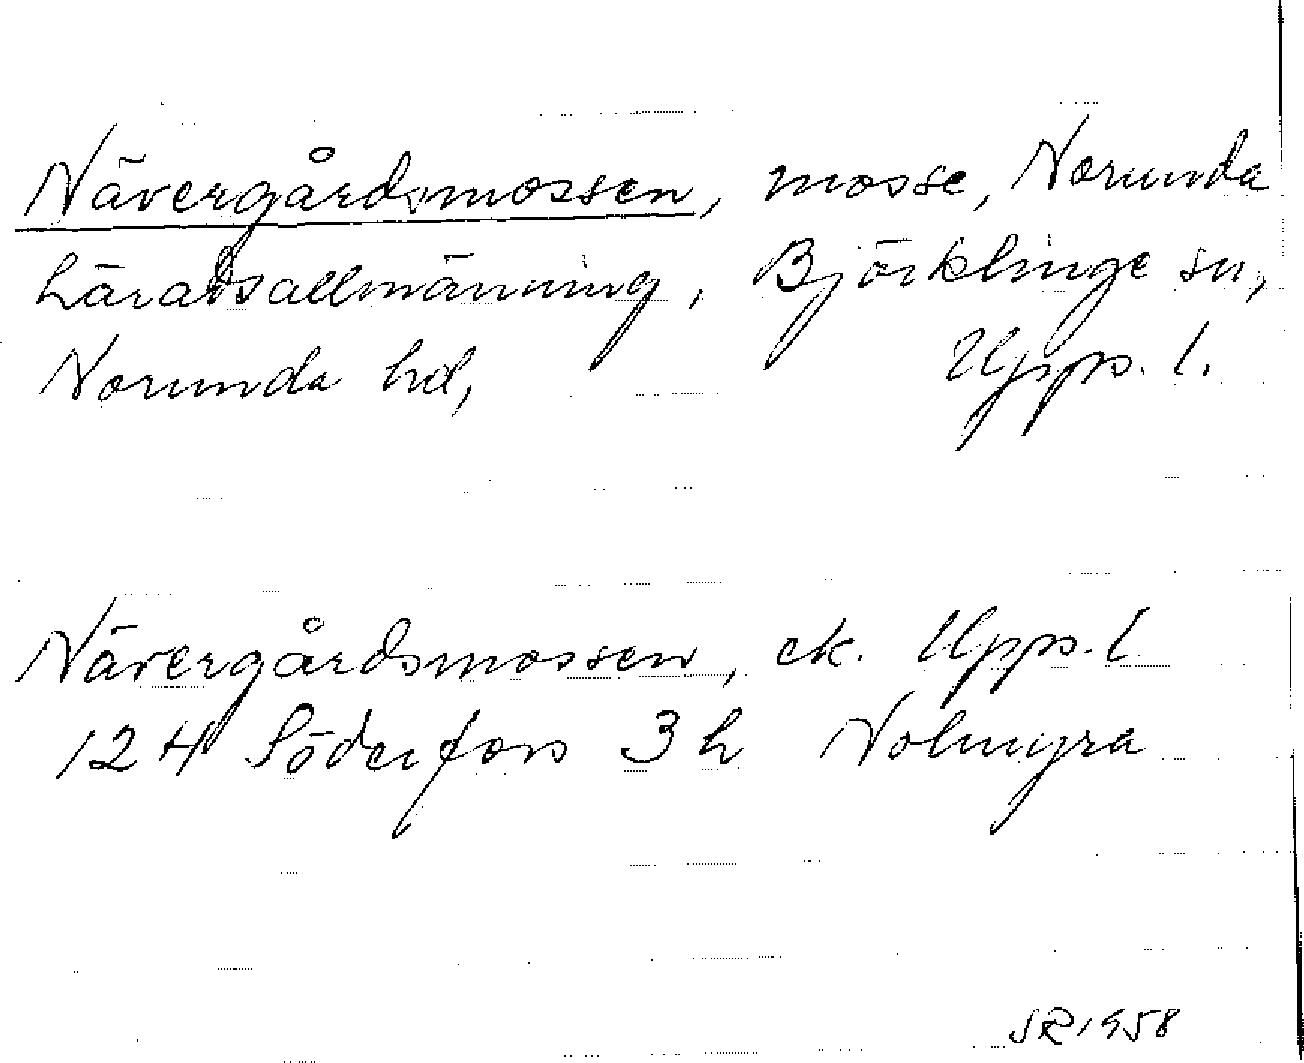 Nävergårdsmossen, mosse, Norunda
häradsallmänning, Björklinge sn,
Norunda hd, Upps. l.
Nävergårdsmossen, ek. Upps. l
12 H Söderfors 3 h Nolmyra
SR 1958